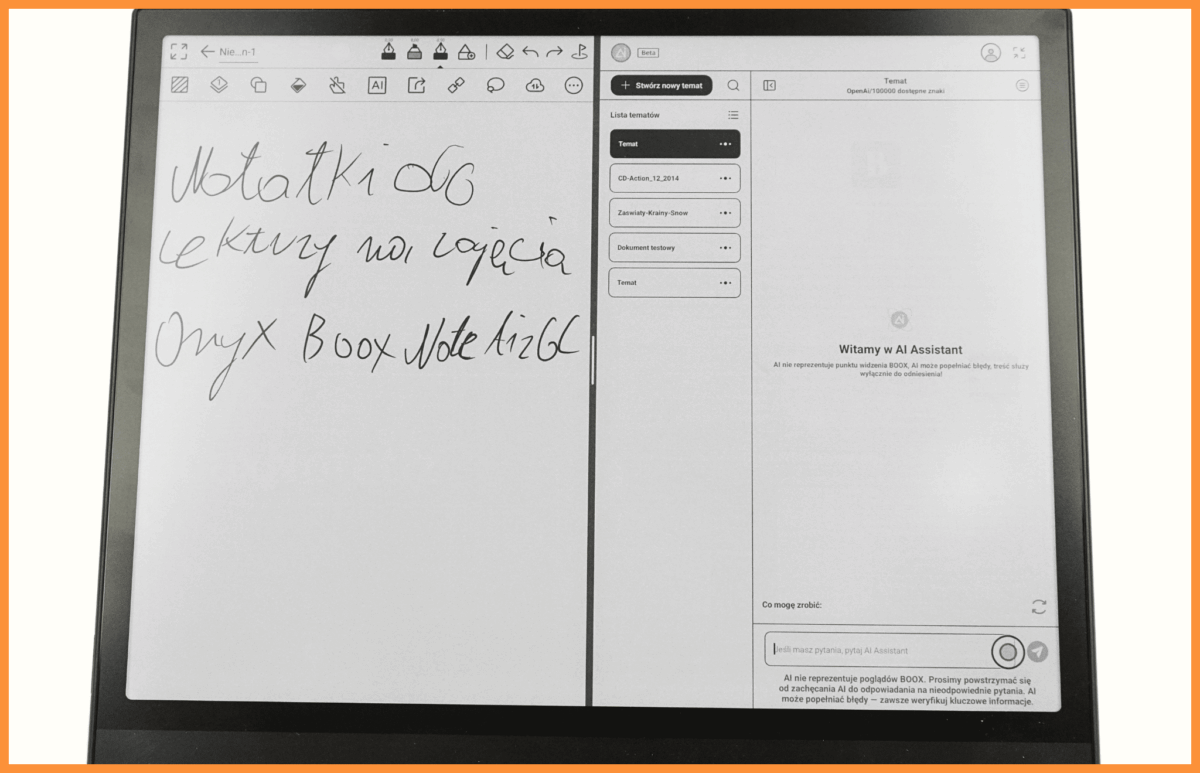 Nie...n-1
AI
Notatki do
Lektury na zajęcia
Onyx Boox Note Air5C
AI
Beta
+ Stwórz nowy temat
Lista tematów
Temat
CD-Action_12_2014
Zaswiaty-Krainy-Snow
Dokument testowy
Temat
Temat
OpenAI/100000 dostępne znaki
AI
Witamy w AI Assistant
AI nie reprezentuje punktu widzenia BOOX, AI może popełniać błędy, treść służy
wyłącznie do odniesienia!
Co mogę zrobić:
Jeśli masz pytania, pytaj AI Assistant
AI nie reprezentuje poglądów BOOX. Prosimy powstrzymać się
od zachęcania AI do odpowiadania na nieodpowiednie pytania. AI
może popełniać błędy — zawsze weryfikuj kluczowe informacje.